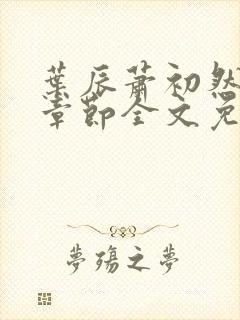 葉辰蕭初然
章節全文免
夢殤之夢